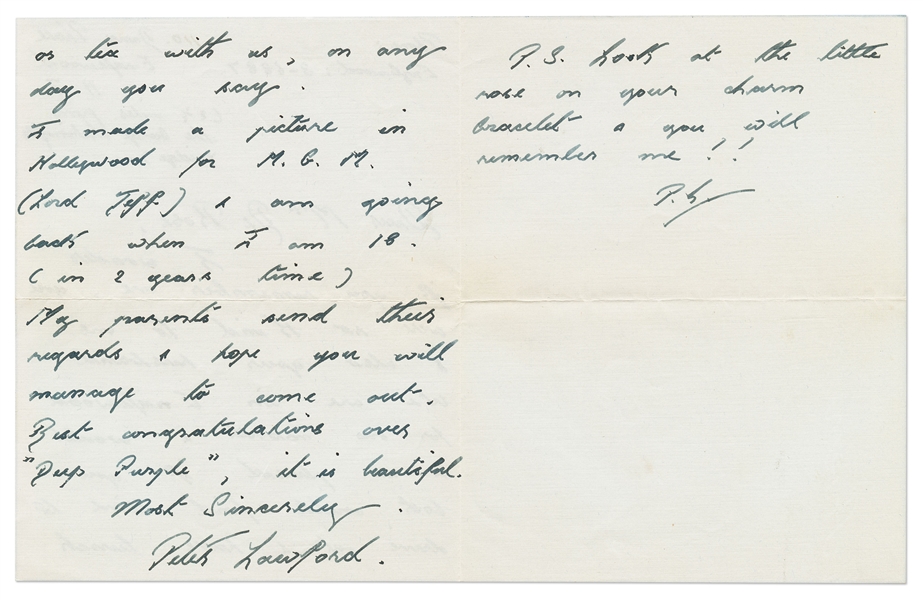 or tea with us, on any
day you say.
I made a picture in
Hollywood for M.G.M.
(Lord Jeff.) & am going
back when I am 18.
(in 2 years time)
My parents send their
regards & hope you will
manage to come out.
Best congratulations over
"Deep Purple", it is beautiful.
Most Sincerely.
Peter Lawford.
P.S. Look at the little
rose on your charm
bracelet & you will
remember me!!
P.L.